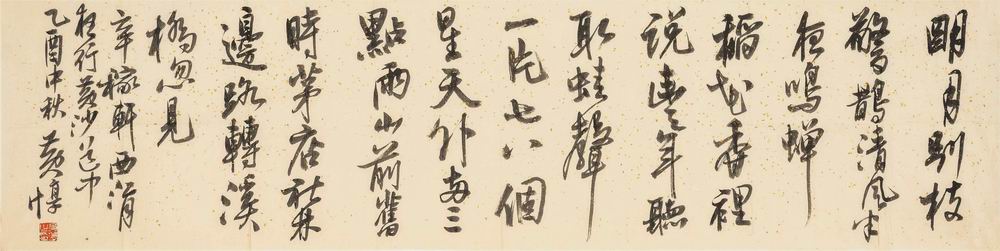 明月別枝
驚鵲清風半
夜鳴蟬
稻花香裡
說豐年聽
取蛙聲
一片七八個
星天外兩三
點雨山前舊
時茅店社林
邊路轉溪
橋忽見
辛稼軒西江月
夜行黃沙道中
乙酉中秋 黃惇